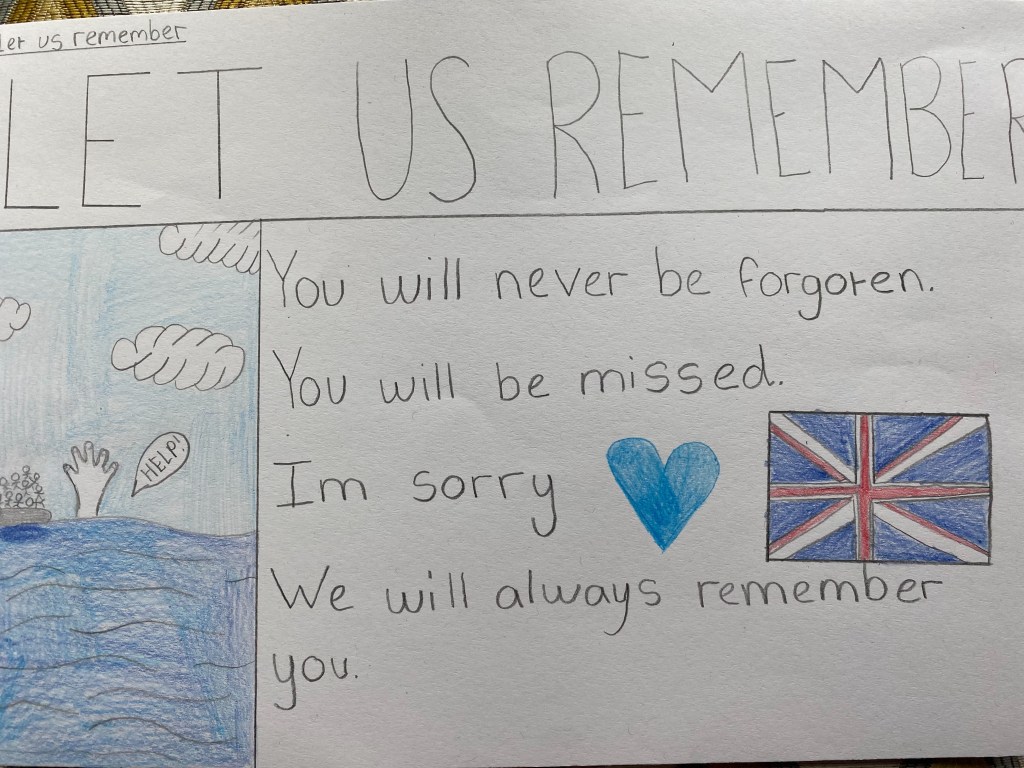 let us remember
LET US REMEMBER
You will never be forgoten.
You will be missed.
HELP!
Im sorry
We will always remember
you.